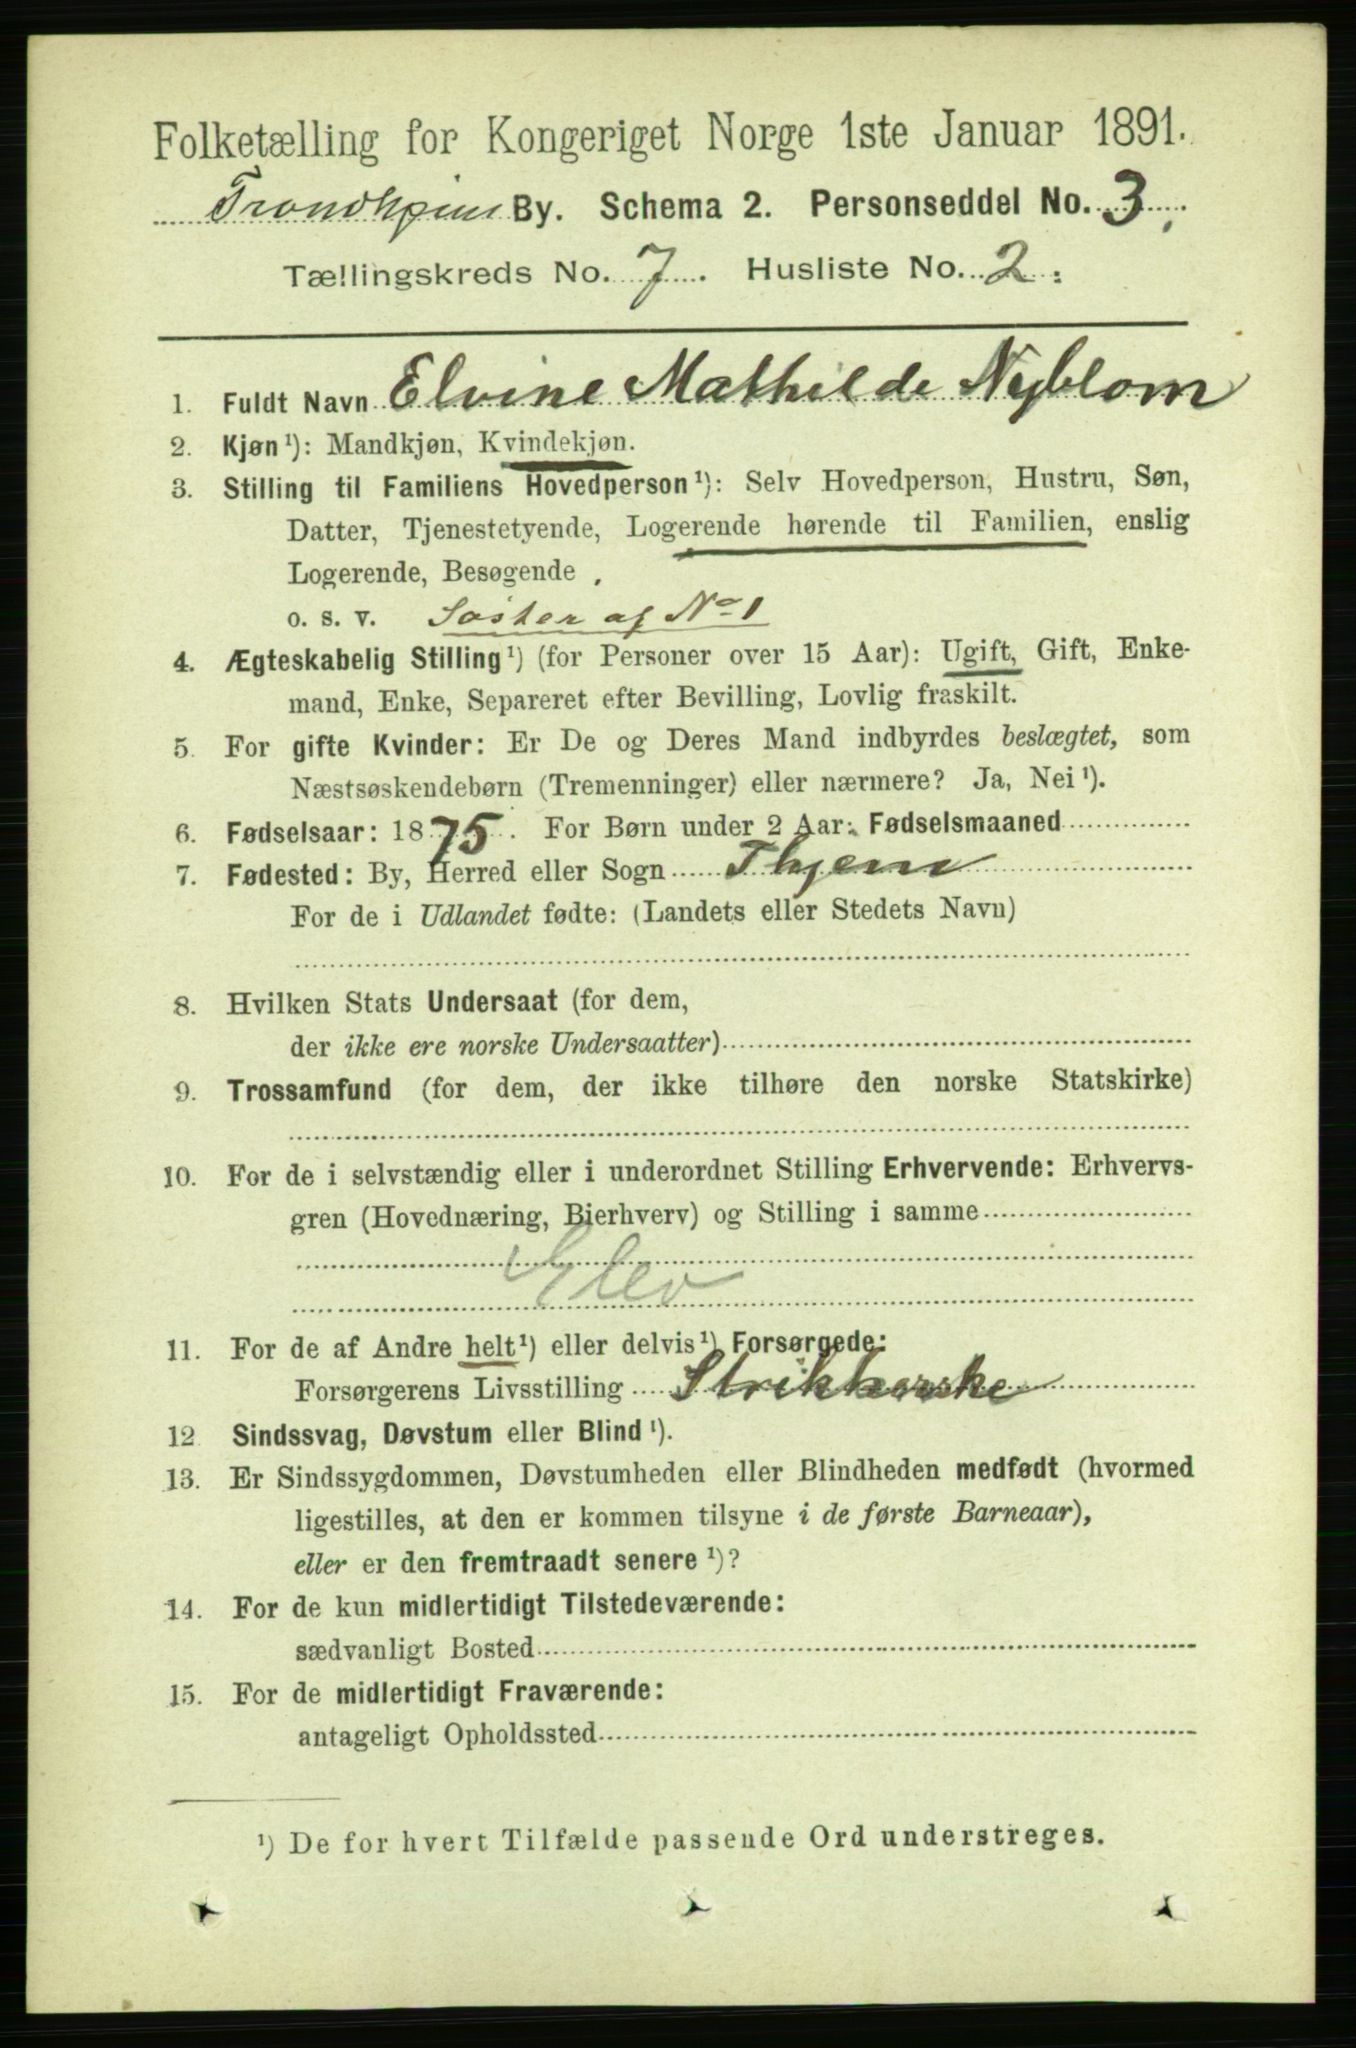 Folketælling for Kongeriget Norge 1ste Januar 1891.
Trondhjem By. Schema 2. Personseddel No. 3.
Tællingskreds No. 7. Husliste No. 2.
1. Fuldt Navn Elvine Mathilde Nyblom
2. Kjøn¹): Mandkjøn, Kvindekjøn.
3. Stilling til Familiens Hovedperson¹): Selv Hovedperson, Hustru, Søn,
Datter, Tjenestetyende, Logerende hørende til Familien, enslig
Logerende, Besøgende.
o. s. v. Søster af No 1
4. Ægteskabelig Stilling¹) (for Personer over 15 Aar): Ugift, Gift, Enke-
mand, Enke, Separeret efter Bevilling, Lovlig fraskilt.
5. For gifte Kvinder: Er De og Deres Mand indbyrdes beslægtet, som
Næstsøskendebørn (Tremenninger) eller nærmere? Ja, Nei¹).
6. Fødselsaar: 1875. For Børn under 2 Aar: Fødselsmaaned
7. Fødested: By, Herred eller Sogn Thjem
For de i Udlandet fødte: (Landets eller Stedets Navn)
8. Hvilken Stats Undersaat (for dem,
der ikke ere norske Undersaatter)
9. Trossamfund (for dem, der ikke tilhøre den norske Statskirke)
10. For de i selvstændig eller i underordnet Stilling Erhvervende: Erhvervs-
gren (Hovednæring, Bierhverv) og Stilling i samme
Elev
11. For de af Andre helt¹) eller delvis¹) Forsørgede:
Forsørgerens Livsstilling Strikkerske
12 Sindssvag, Døvstum eller Blind¹).
13. Er Sindssygdommen, Døvstumheden eller Blindheden medfødt (hvormed
ligestilles, at den er kommen tilsyne i de første Barneaar),
eller er den fremtraadt senere¹)?
14. For de kun midlertidigt Tilstedeværende:
sædvanligt Bosted
15. For de midlertidigt Fraværende:
antageligt Opholdssted
¹) De for hvert Tilfælde passende Ord understreges.